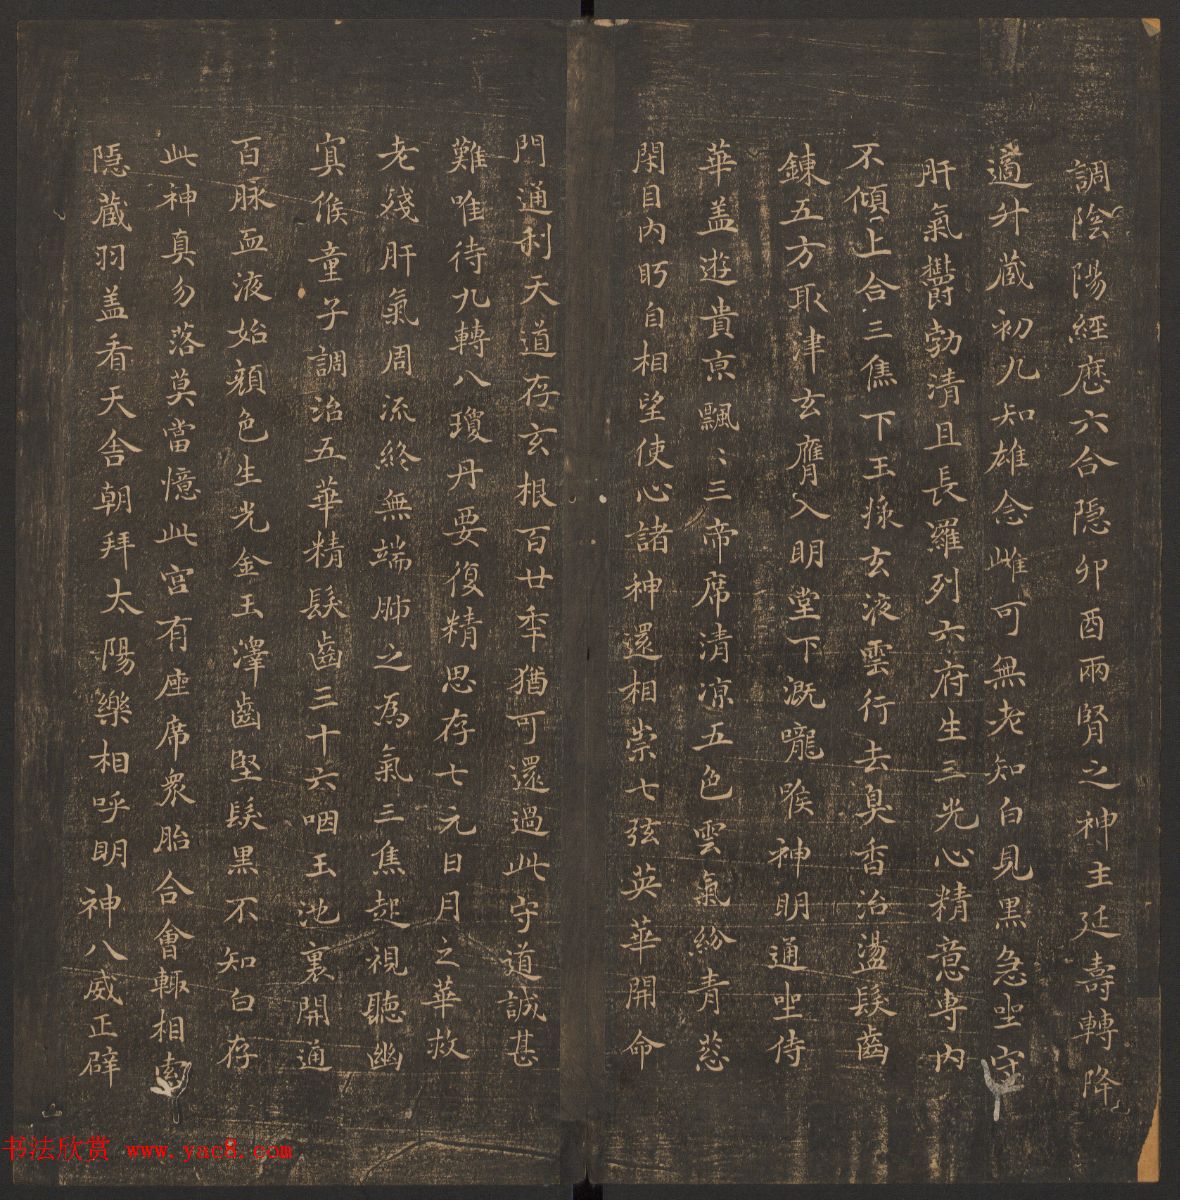 調陰陽經歷六合隱卯酉兩腎之神主延壽轉降
適升藏初九知雄念雌可無老知白見黑急坐守
肝氣欝勃清且長羅列六府生三光心精意專內
不傾上合三焦下玉漿玄液雲行去臭香治盪髮齒
鍊五方取津玄膺入明堂下溉嚨喉神明通坐侍
華盖遊貴京飄〻三帝席清凉五色雲氣紛青葱
閑目內眄自相望使心諸神還相崇七弦英華開命
門通利天道存玄根百廿年猶可還過此守道誠甚
難唯待九轉八瓊丹要復精思存七元日月之華救
老殘肝氣周流終無端肺之為氣三焦起視聽幽
寘候童子調治五華精髮齒三十六咽玉池裏開通
百脉血液始顏色生光金玉澤齒堅髮黑不知白存
此神真勿落莫當憶此宮有座席衆胎合會輙相索
隱藏羽盖看天舍朝拜太陽樂相呼明神八威正辟
书法欣赏 www.yac8.com